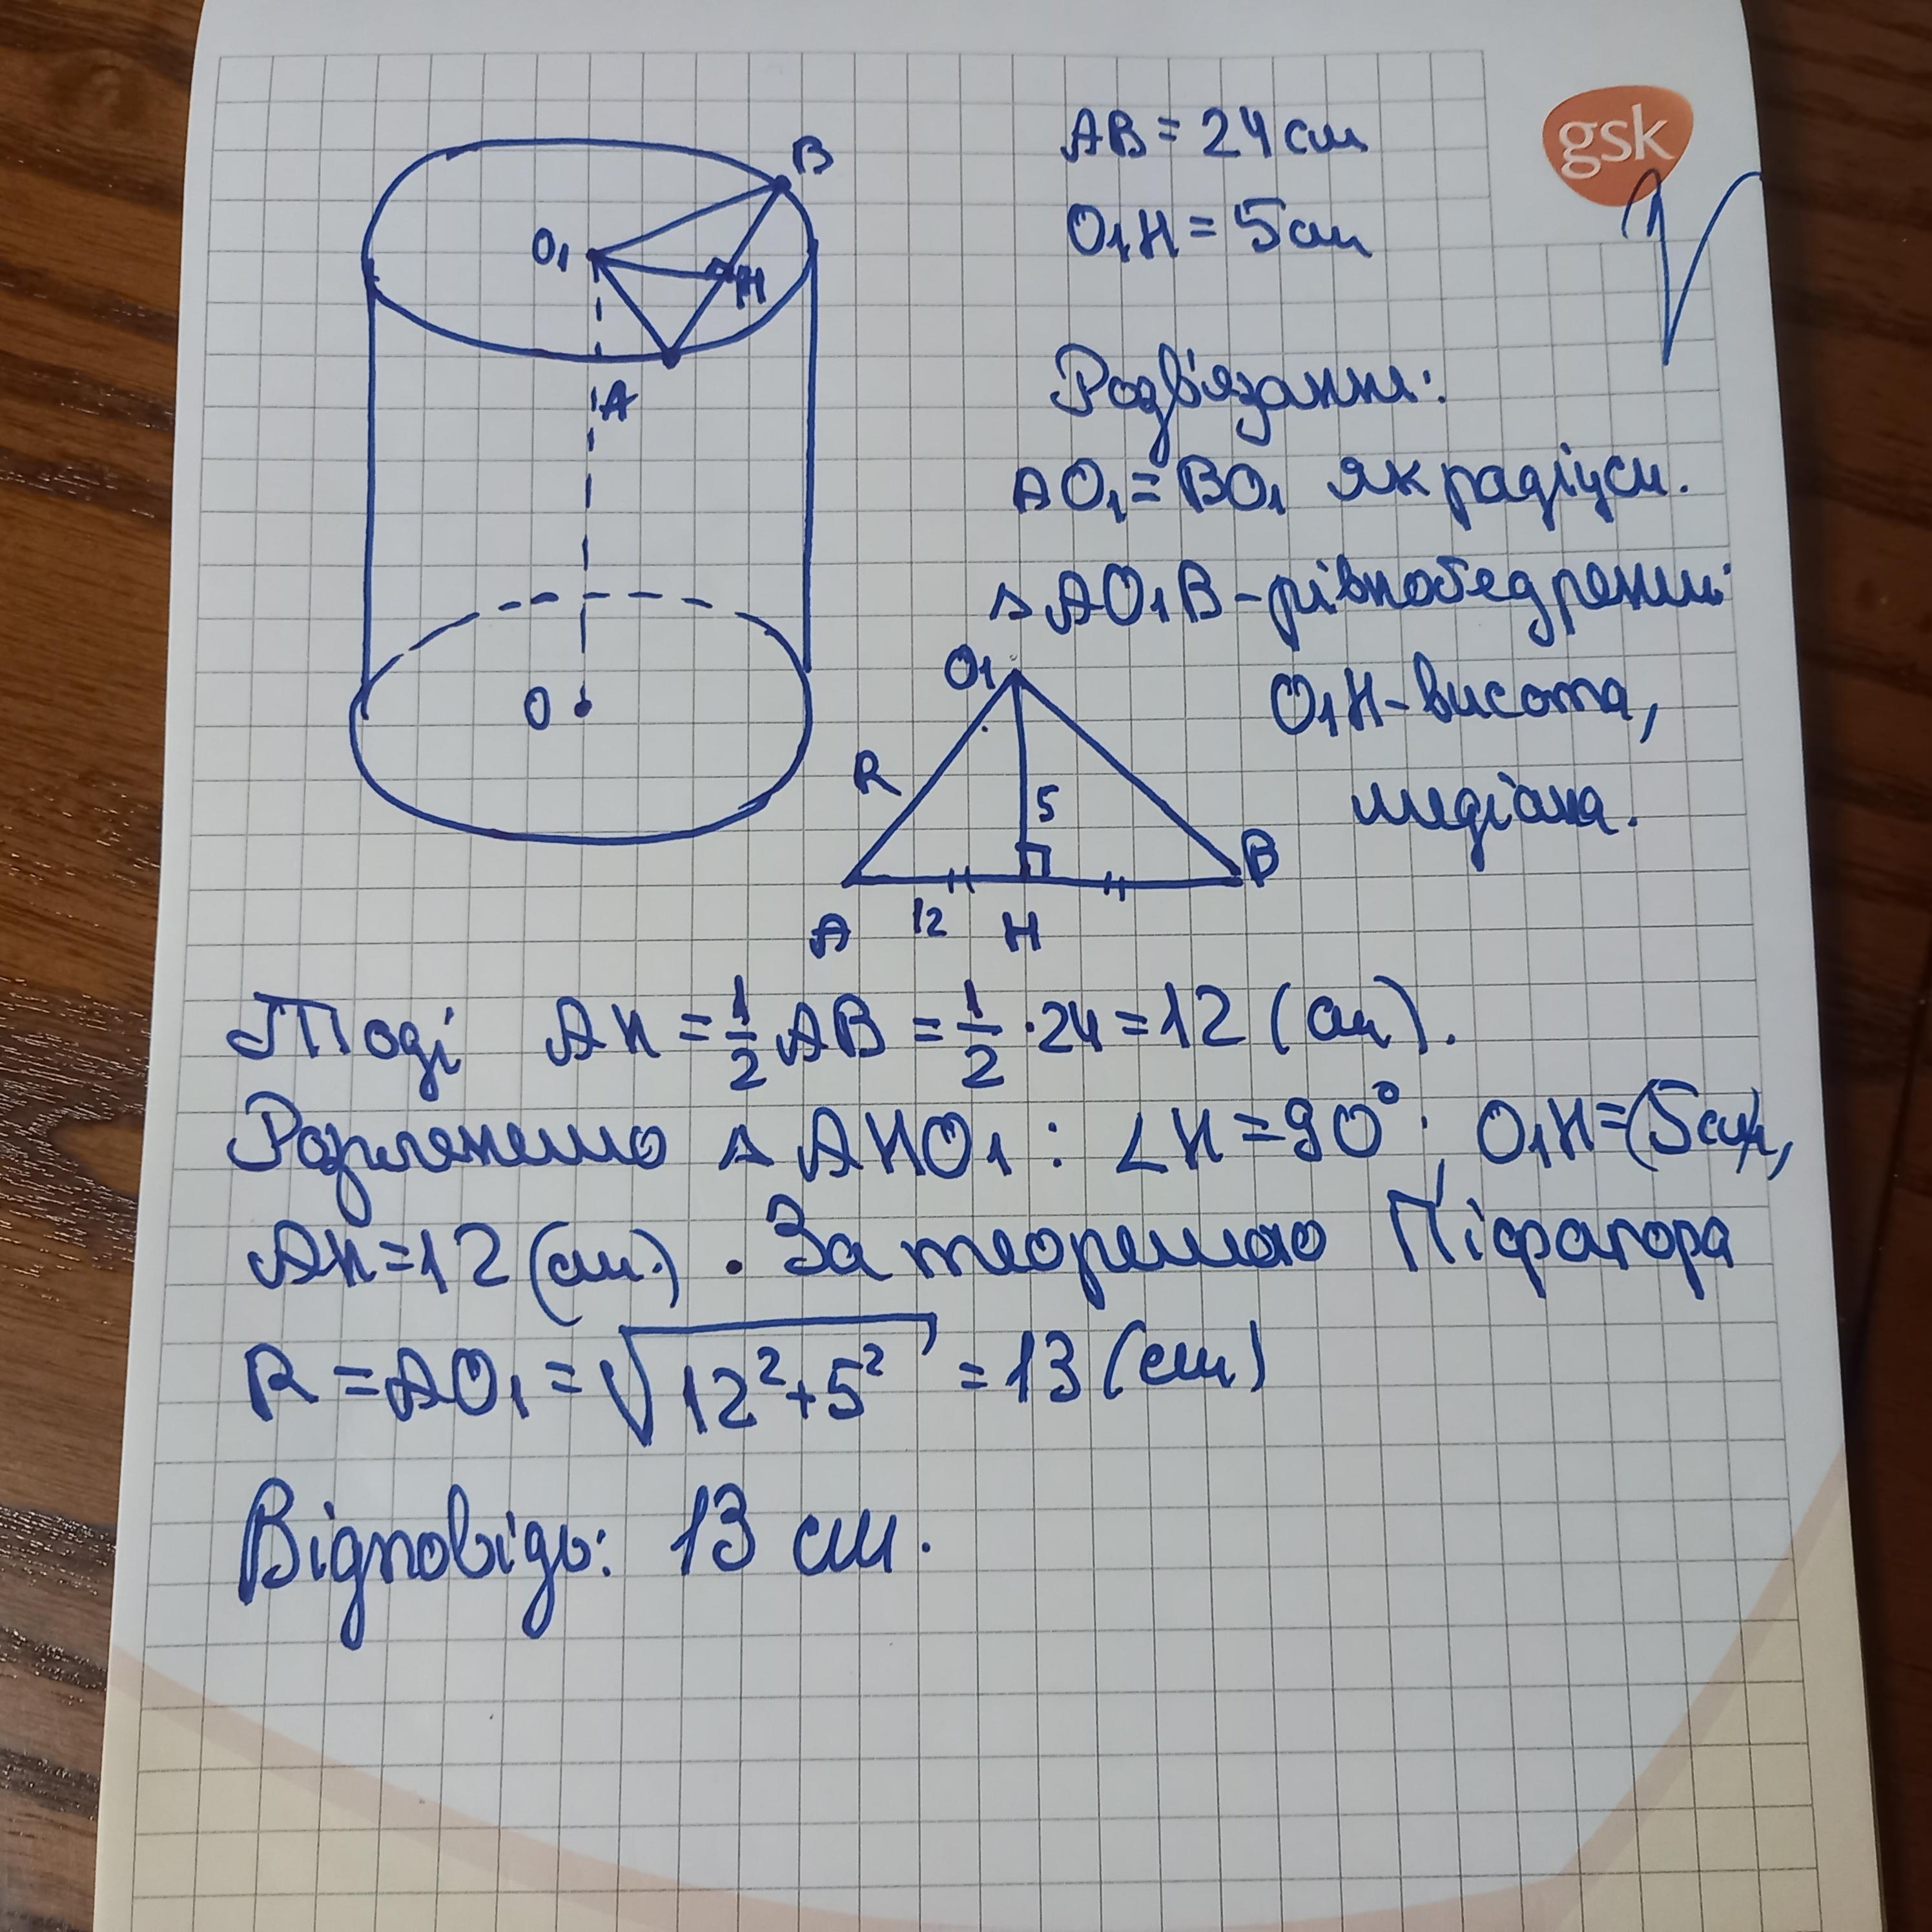 gsk
AB = 24 см
O₁H = 5 см
B
O₁
H
A
O
Розв'язання:
AO₁ = BO₁ як радіуси.
△ AO₁B - рівнобедрений
O₁H - висота,
медіана.
O₁
R
5
A
12
H
B
Тоді AH = 1/2 AB = 1/2 · 24 = 12 (см).
Розглянемо △ AHO₁ : ∠H = 90°; O₁H = (5 см),
AH = 12 (см.) . За теоремою Піфагора
R = AO₁ = √(12² + 5²) = 13 (см)
Відповідь: 13 см.